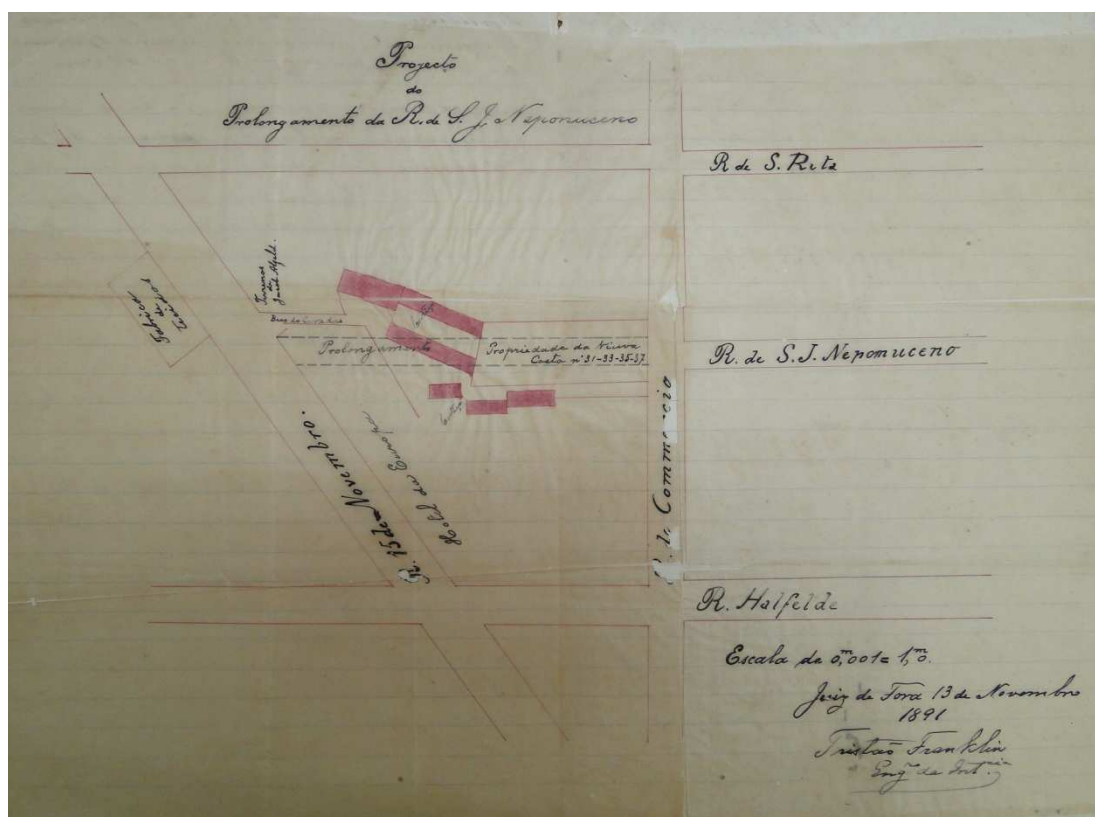 Projecto
do
Prolongamento da R. de S. J. Nepomuceno
R de S. Rita
Terrenos
de
Fabrica
de
Tecidos
Beco do
Prolongamento
Propriedade da Viuva
Costa nº 31-33-35-37
R. de S. J. Nepomuceno
R. 15 de Novembro.
Hotel da Europa
R. do Commercio
R. Halfelde
Escala de 0,ᵐ001 = 1,ᵐ0.
Juiz de Fora 13 de Novembro
1891
Tristaõ Franklin
Engʳᵒ da Intᶜⁱᵃ